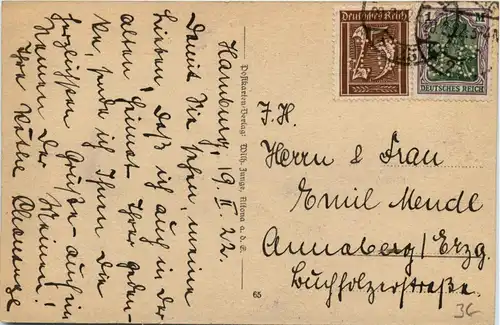 Hamburg, 19. II. 22.
Damit Sie sehn, meine
Lieben, daß ich auch in der
alten Heimat Ihrer geden-
ke, sende ich Ihnen die
herzlichsten Grüße – auch im
Namen der Meinen!
Ihre Käthe
Postkarten-Verlag: Wilh. Junge, Altona a. d. E.
65
Deutsches Reich
DEUTSCHES REICH
F. H.
Herrn & Frau
Emil Mende
Annaberg/Erzg.
Buchholzerstraße.